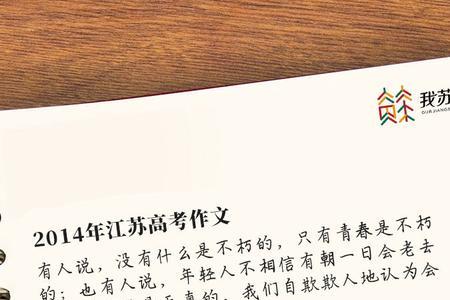 我苏
2014年江苏高考作文
有人说，没有什么是不朽的，只有青春是不朽
的；也有人说，年轻人不相信有朝一日会老去
是天真的，我们自欺欺人地认为会